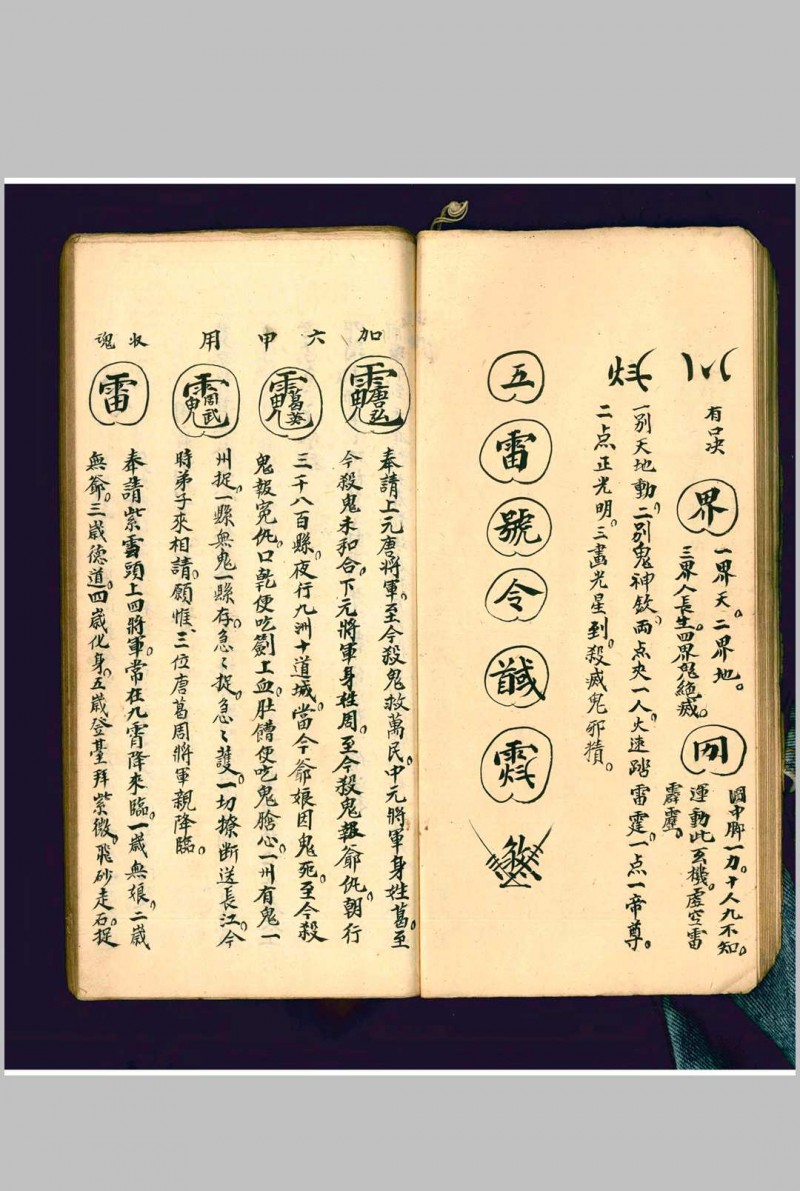 有口决
界
一界天。二界地。
三界人長生。四界鬼絶滅。
罔中脚一刀。十人九不知。
運動此玄機。虚空雷
霹靂。
一别天地動。二别鬼神欽。两点夾一人。火速踏雷霆。一点一帝尊。
二点正光明。三畵光星到。殺滅鬼邪精。
五
雷
號
令
加六甲用
唐弘
葛英
周武
奉請上元唐將軍。至今殺鬼救萬民。中元將軍身姓葛。至
今殺鬼未和合。下元將軍身姓周。至今殺鬼報爺仇。朝行
三千八百縣。夜行九洲十道城。當今爺娘因鬼死。至今殺
鬼報寃仇。口乾便吃劉上血。肚饑便吃鬼膽心。一州有鬼一
州捉。一縣無鬼一縣存。急〻捉。急〻護。一切撩断送長江。今
時弟子來相請。願惟三位唐葛周將軍親降臨。
收魂
雷
奉請紫雲頭上四將軍。常在九霄降來臨。一歳無娘。二歳
無爺。三歳德道。四歳化身。五歳登基拜紫微。飛砂走石。捉